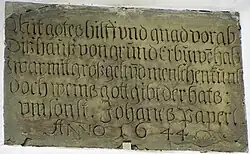 Mit gotes hilff und gnad vorab
Dis haus von grund erbuwen hab
war mit gros gelt menschen kunst
doch wems gott gibt der hats
umsonst. Johanes
ANNO 1644